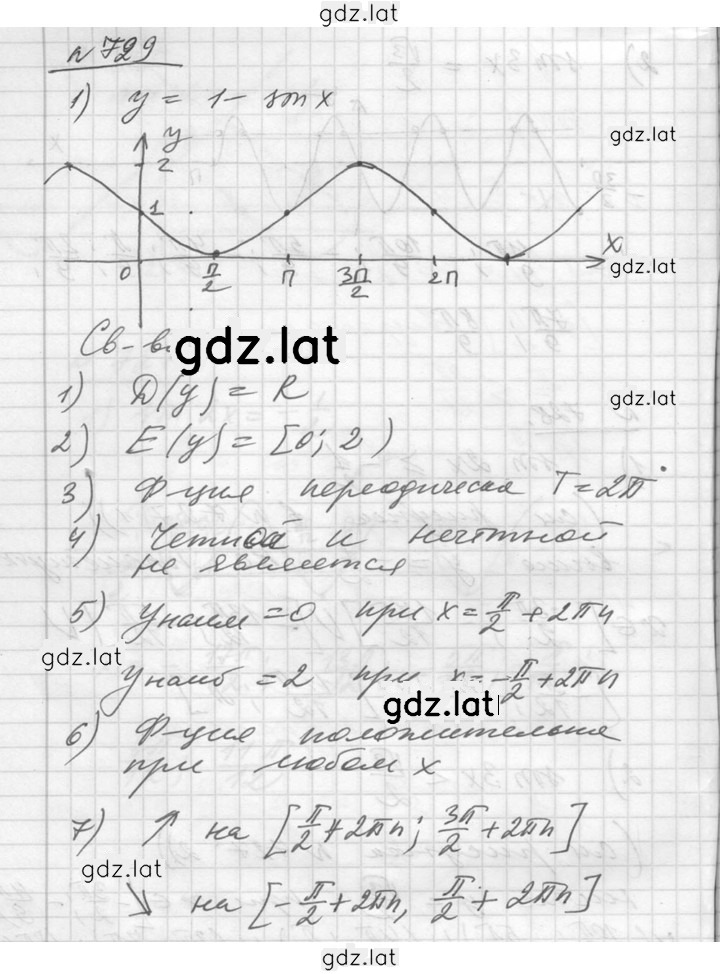 gdz.lat
n 729
1) y = 1 - sin x
y
2
gdz.lat
1
x
0 π/2 п 3п/2 2п
gdz.lat
Св-ва
gdz.lat
1) D(y) = R
gdz.lat
2) E(y) = [0; 2)
3) Ф-ция периодическа T = 2π
gdz.lat
4) Четной и нечётной
не является
5) y наим = 0 при x = π/2 + 2πn
gdz.lat
y наиб = 2 при x = -π/2 + 2πn
gdz.lat
6) Ф-ция положительна
при любом x
7) ↑ на [π/2 + 2πn; 3π/2 + 2πn]
gdz.lat
↘ на [-π/2 + 2πn, π/2 + 2πn]
gdz.lat